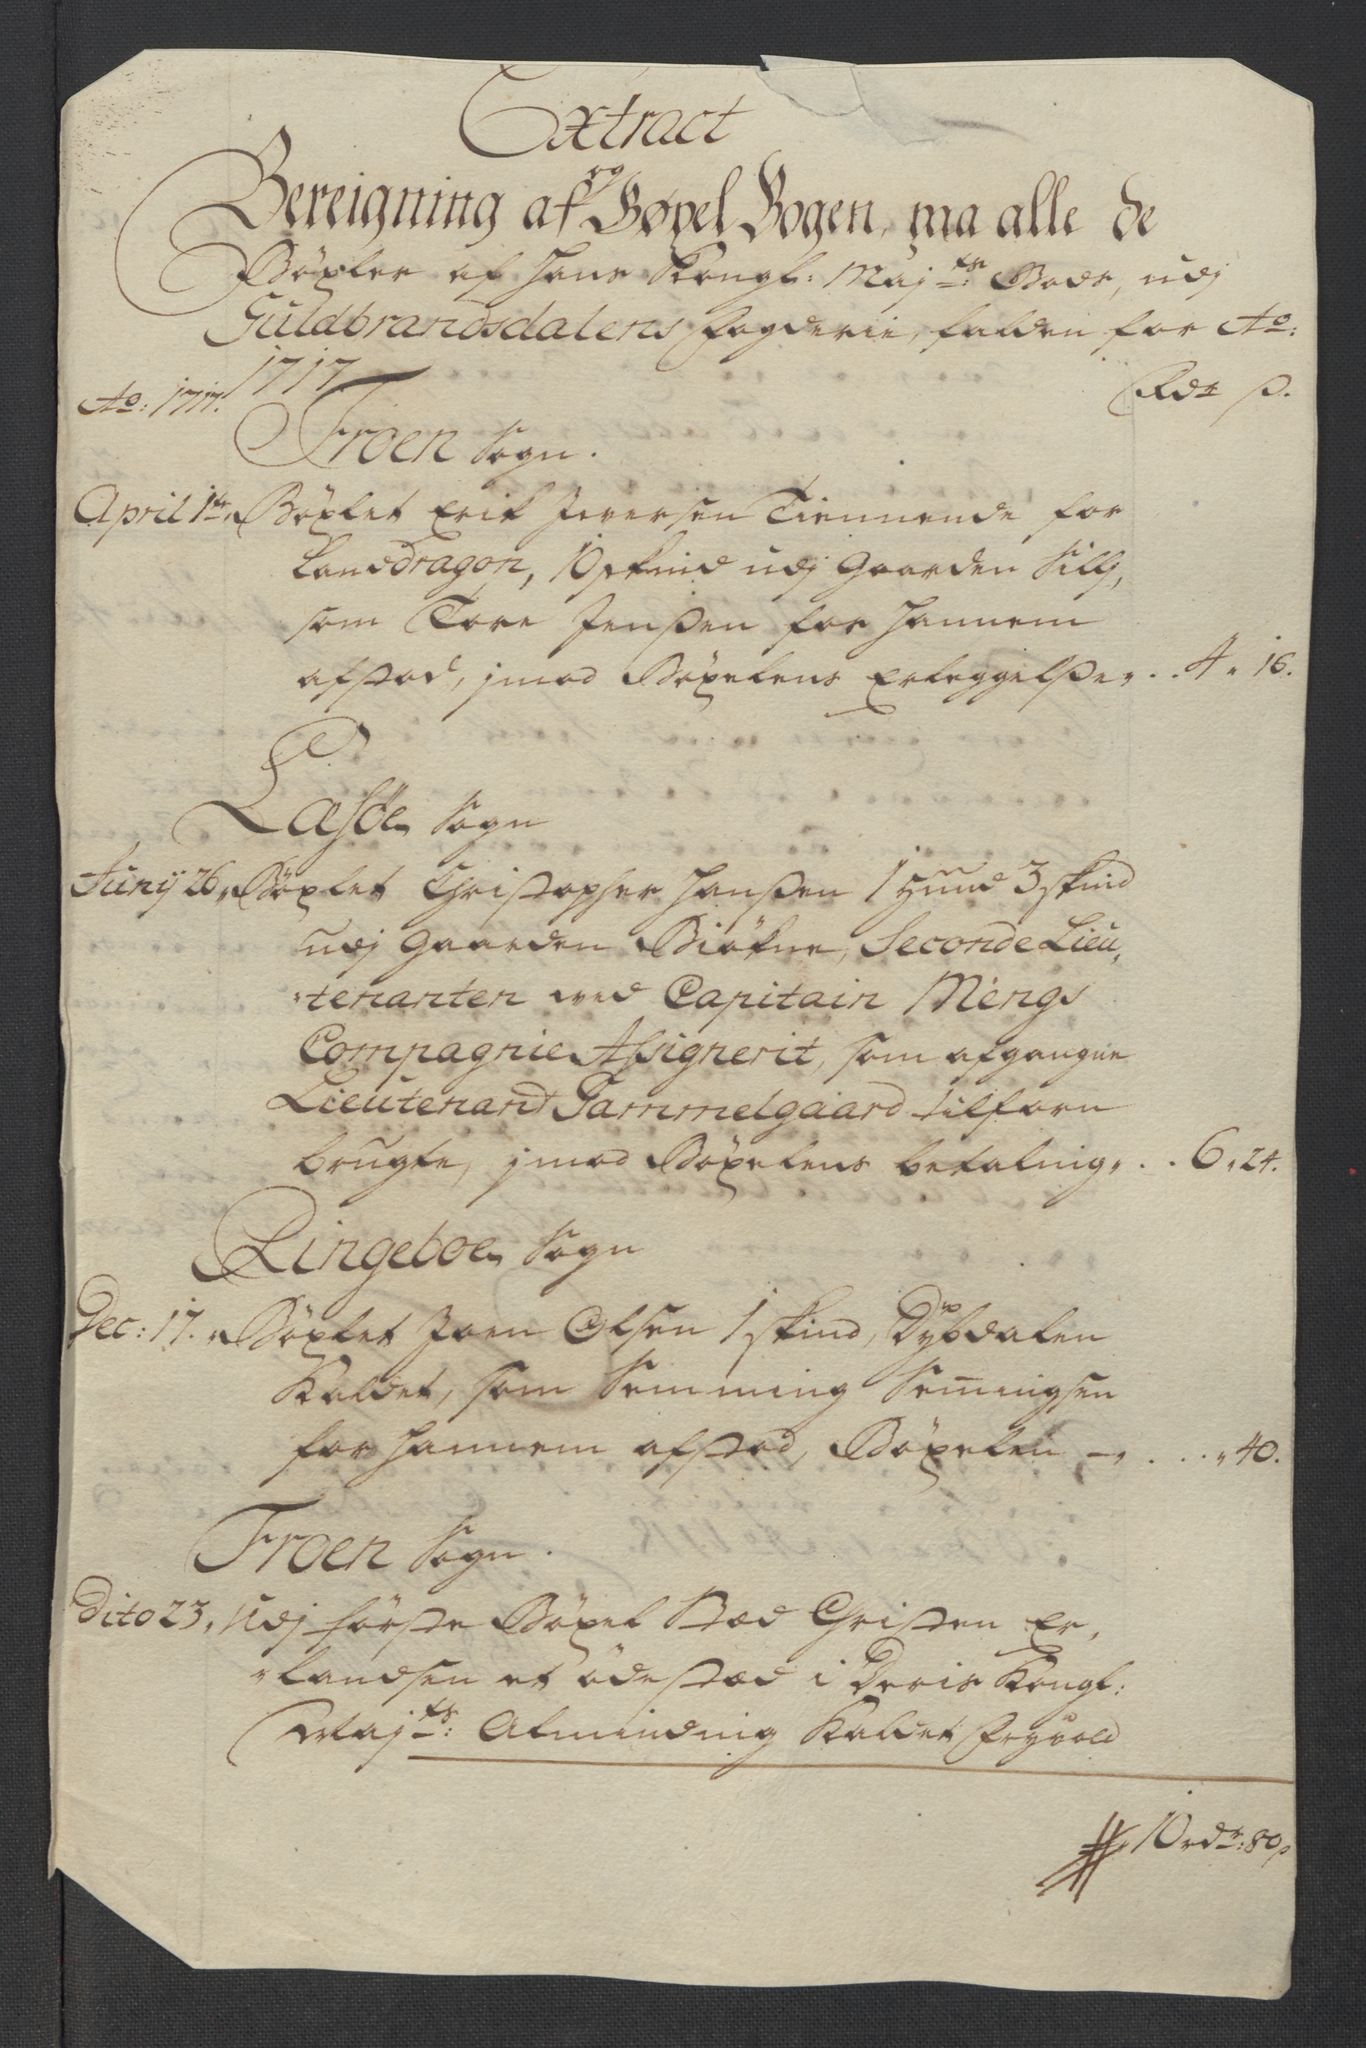 Extract
og
Bereigning af Böxel Bogen, ma alle de
Böxler af Hans Kongl: Maj:ts Gods, udj
Guldbrandsdalens fogderie, falden for Ao:
1717
Ao: 1717. Rdr ß.
Froen Sogn.
April 1te, Böxlet Erik Iversen Tiennende for
Landdragon, 10 skind udj Gaarden Sillj,
som Tore Jenßen for hannem
afstod, jmod Böxelens Erleggelße,. . . 4 " 16.
Læsöe Sogn
Junij 26, Böxlet Christopher Hanßen 1 Hund 3 skind
udj Gaarden Biökne, Seconde Lieu,
"tenanten ved Capitain Mengs
Compagnie Assignerit, som afgangne
Lieutenant Gammelgaard tilforn
brugte, jmod Böxelens betaling,. . . 6 " 24.
Ringeboe Sogn
Dec: 17. Böxlet Joen Olsen 1 skind, Dybdalen
Kaldet, som Semming Semingsen
for hannem afstod, Böxelen — . . . " 40.
Froen Sogn.
Dito 23, Udj förste Böxel Stæd Christen Er,
"landsen et ödestæd i Deris Kongl:
Maj:ts Alminding Kaldet Frÿvold
10 rdr: 80 ß